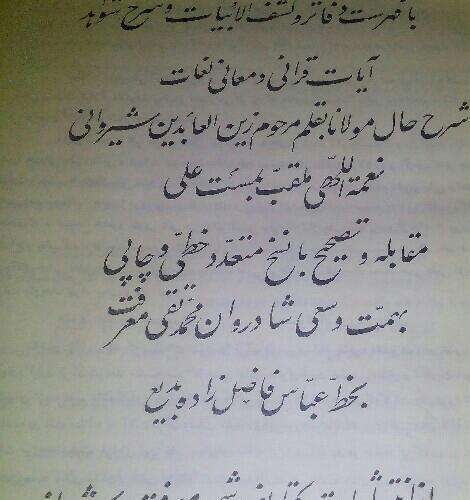 با فهرست دفاتر و کشف الابیات و شرح شواهد
آیات قرآنی و معانی لغات
شرح حال مولانا بقلم مرحوم زین العابدین شیروانی
نعمة اللهی ملقب بمست علی
مقابله و تصحیح با نسخ متعدد خطی و چاپی
بهمت و سعی شادروان محمد تقی معرفت
بخط عباس فاضل زاده بدیع
از انتشارات